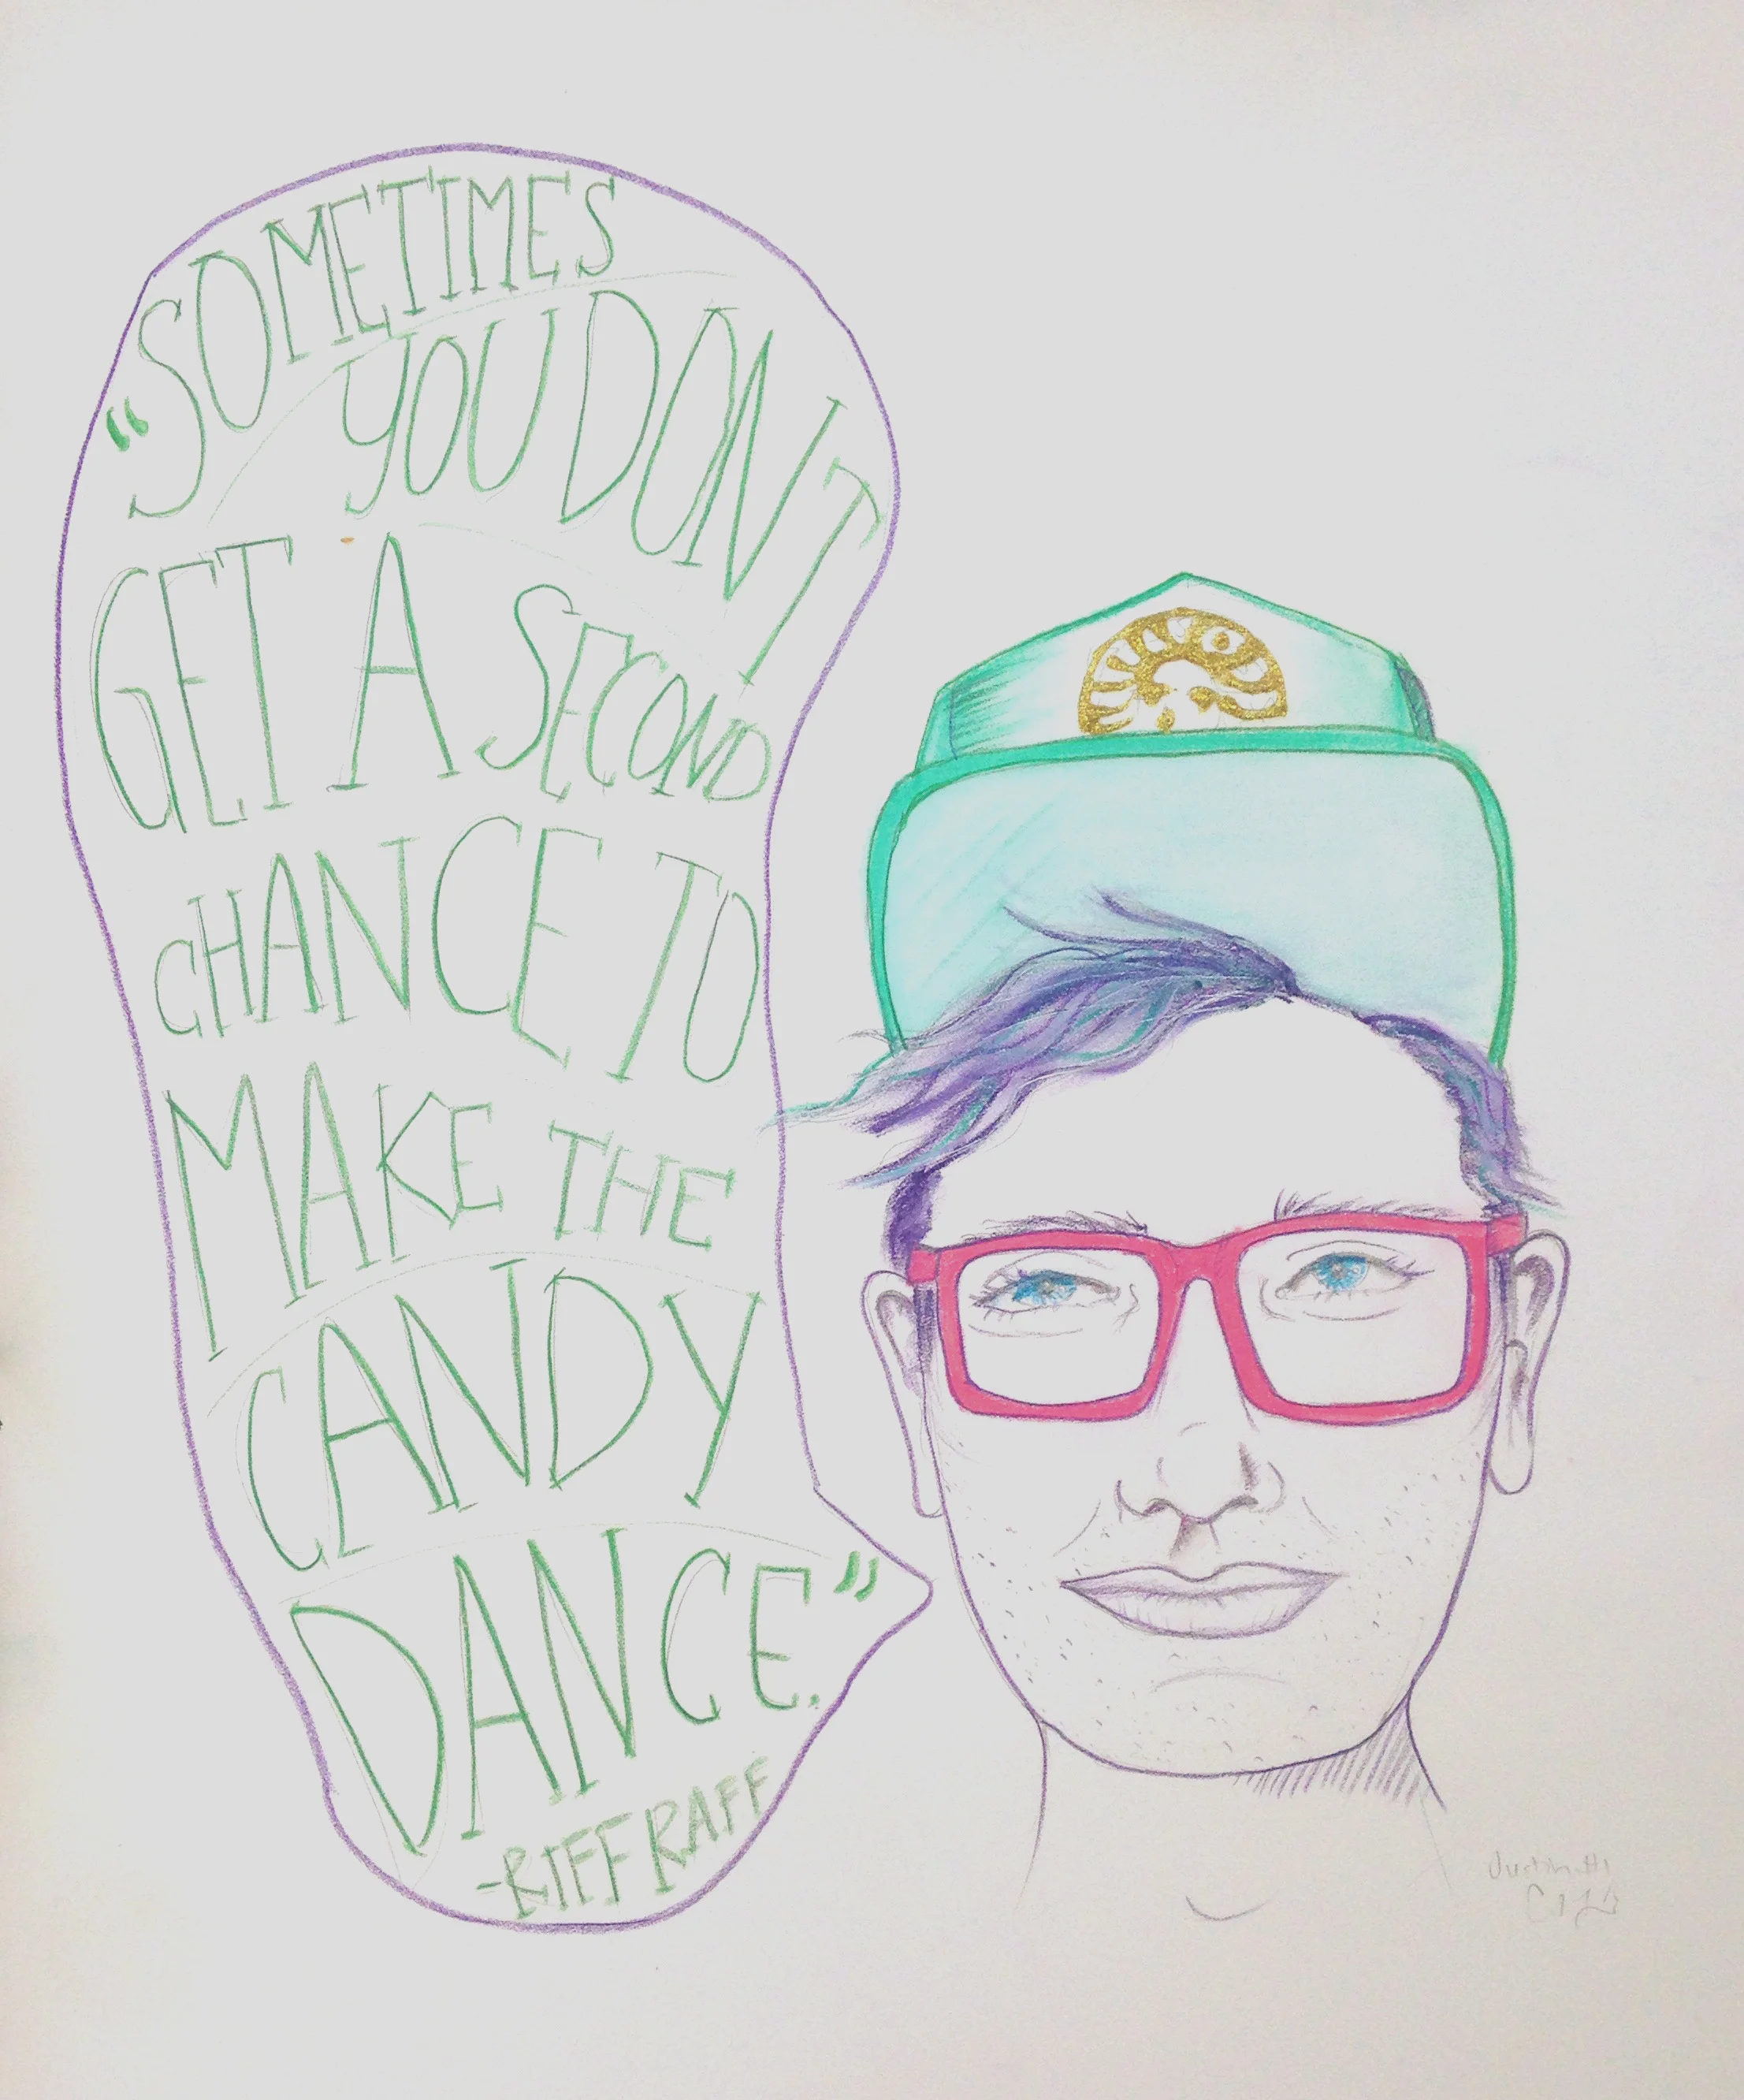 “SOMETIMES
YOU DON'T
GET A SECOND
CHANCE TO
MAKE THE
CANDY
DANCE.”
-RIFF RAFF